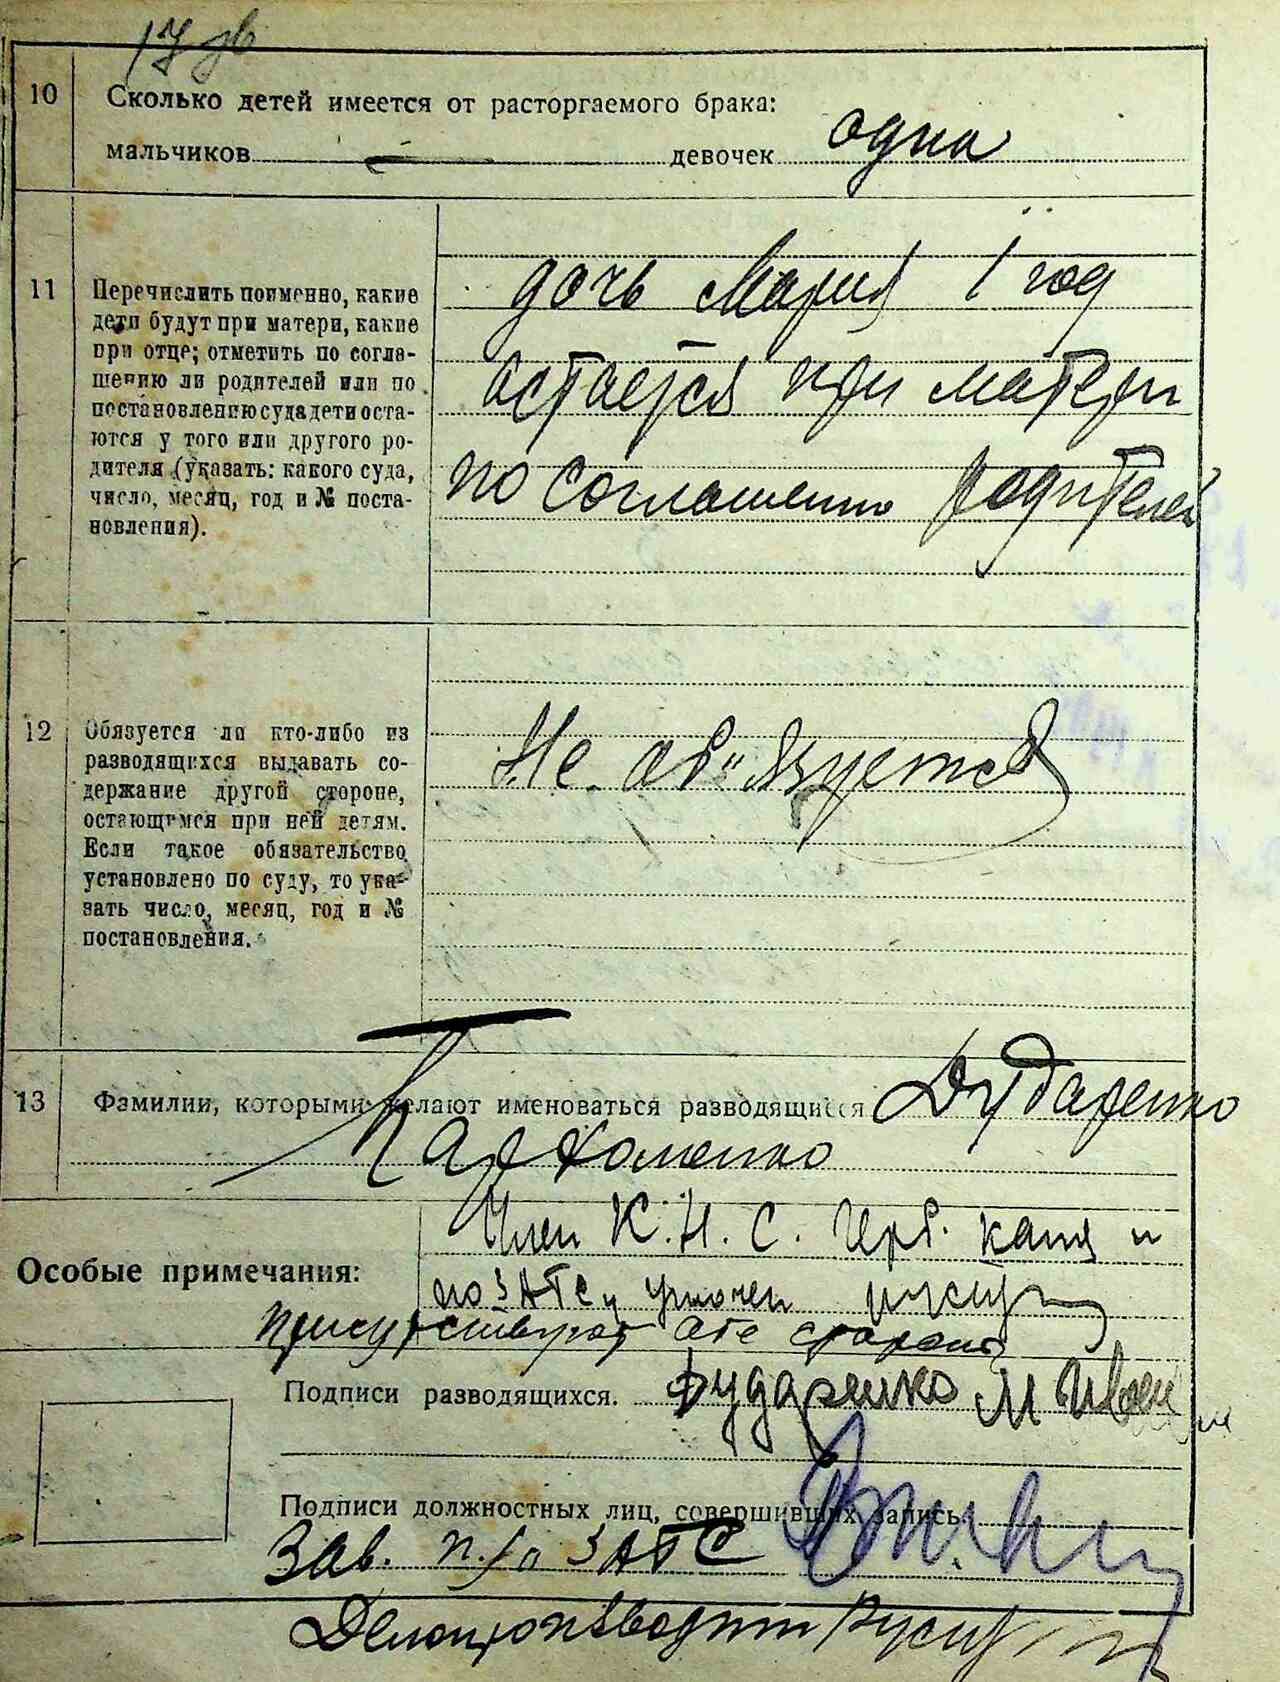 10 Сколько детей имеется от расторгаемого брака:
мальчиков — девочек одна
11 Перечислить поименно, какие
дети будут при матери, какие
при отце; отметить по согла-
шению ли родителей или по
постановлению суда дети оста-
ются у того или другого ро-
дителя (указать: какого суда,
число, месяц, год и № поста-
новления).
дочь Мария 1 год
остается при матери
по соглашению родителей
12 Обязуется ли кто-либо из
разводящихся выдавать со-
держание другой стороне,
остающимся при ней детям.
Если такое обязательство
установлено по суду, то ука-
зать число, месяц, год и №
постановления.
Не об"язуется
13 Фамилии, которыми желают именоваться разводящиеся Дударенко
Пархоменко
Особые примечания:
Член К.Н.С.
по ЗАГС
присутствуют обе стороны
Подписи разводящихся. Дударенко М
Подписи должностных лиц, совершивших запись
Зав. п/о ЗАГС
Делопроизводит